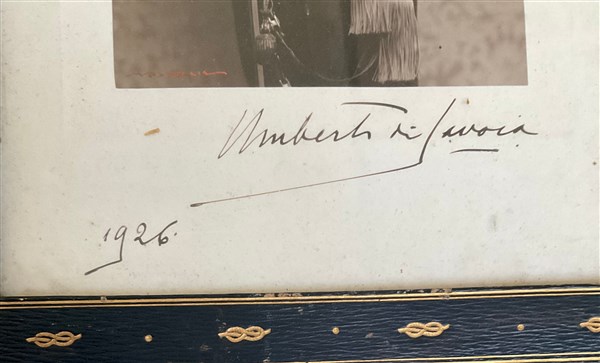 Umberto di Savoia
1926.